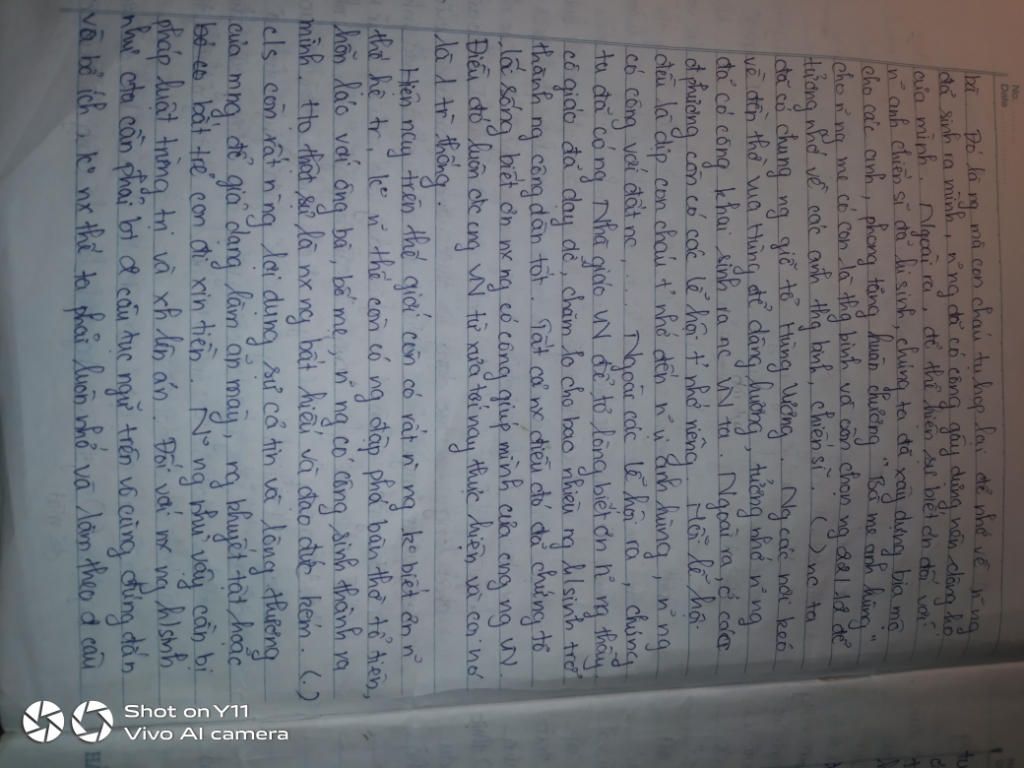 No.
Date
bè Đó là ng mà con cháu tụ họp lại để nhớ về n ng
đã sinh ra mình, n ng đã có công gây dựng nên dòng họ
của mình. Ngoài ra, để thể hiện sự biết ơn đối với
n anh chiến sĩ đã hi sinh, chúng ta đã xây dựng bia mộ
cho các anh, phong tặng huân chương "Bà mẹ anh hùng"
cho n ng mẹ có con là thg binh và còn chọn ng để
tưởng nhớ về các anh thg binh, chiến sĩ. ( ) nc ta
đã có chung ng giỗ tổ Hùng Vương. Ng các nơi kéo
về đền thờ vua Hùng để dâng hương, tưởng nhớ n ng
đã có công khai sinh ra nc VN ta. Ngoài ra, ở các
đ phương còn có các lễ hội t nhớ riêng. Mỗi lễ hội
đều là dịp con cháu t nhớ đến n vị anh hùng, n ng
có công với đất nc. Ngoài các lễ hội ra, chúng
ta đã có ng Nhà giáo VN để tỏ lòng biết ơn n ng thầy
cô giáo đã dạy dỗ, chăm lo cho bao nhiêu ng h/sinh trở
thành ng công dân tốt. Tất cả nx điều đó đã chứng tỏ
lẽ sống biết ơn nx ng có công giúp mình của cng ng VN.
Điều đó luôn đc cng VN từ xưa tới nay thực hiện và coi nó
là 1 tr thống.
Hiện nay trên thế giới còn có rất n ng ko biết ơn n
thế hệ tr, ko n thế còn có ng đập phá bàn thờ tổ tiên,
hỗn láo với ông bà, bố mẹ, n ng có công sinh thành ra
mình. Họ thật sự là nx ng bất hiếu và đạo đức kém. (.)
c/s còn rất n ng lợi dụng sự cả tin và lòng thương
của mng để giả dạng làm ăn mày, ng khuyết tật hoặc
bắt trẻ con đi xin tiền. N ng như vậy cần bị
pháp luật trừng trị và xh lên án. Đối với mx ng h/sinh
như cta cần phải bt đ câu tục ngữ trên vô cùng đúng đắn
và bổ ích, ko nx thế ta phải luôn nhớ và làm theo đ câu